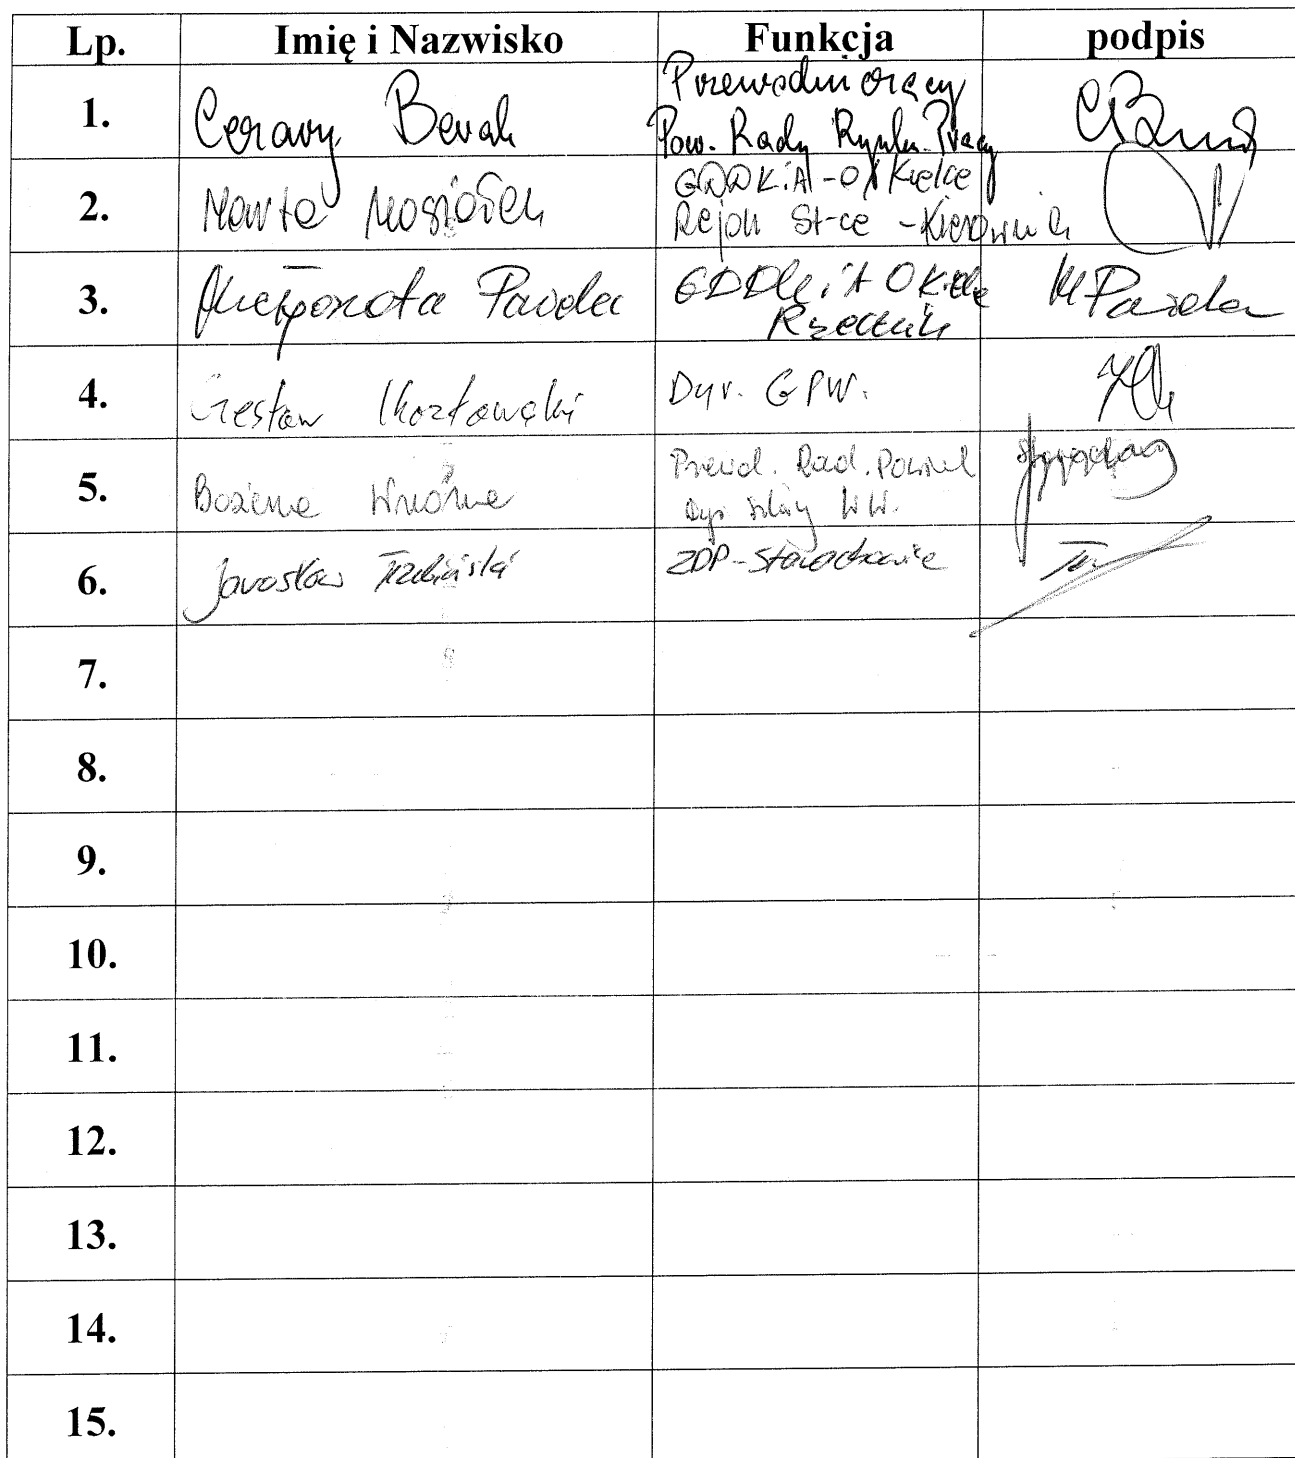 Lp. Imię i Nazwisko Funkcja podpis
1. Cezary Berak Przewodniczący
Pow. Rady Rynku Pracy
2. Marta GDDKiA-O/Kielce
Rejon St-ce - Kierownik
3. Małgorzata Pawelec GDDKiA O Kielce
Rzecznik
4. Czesław Kozłowski Dyr. GPW.
5. Bożena Wrona Przewod. Rad. Powiat
6. Jarosław ZDP-Starachowice
7.
8.
9.
10.
11.
12.
13.
14.
15.